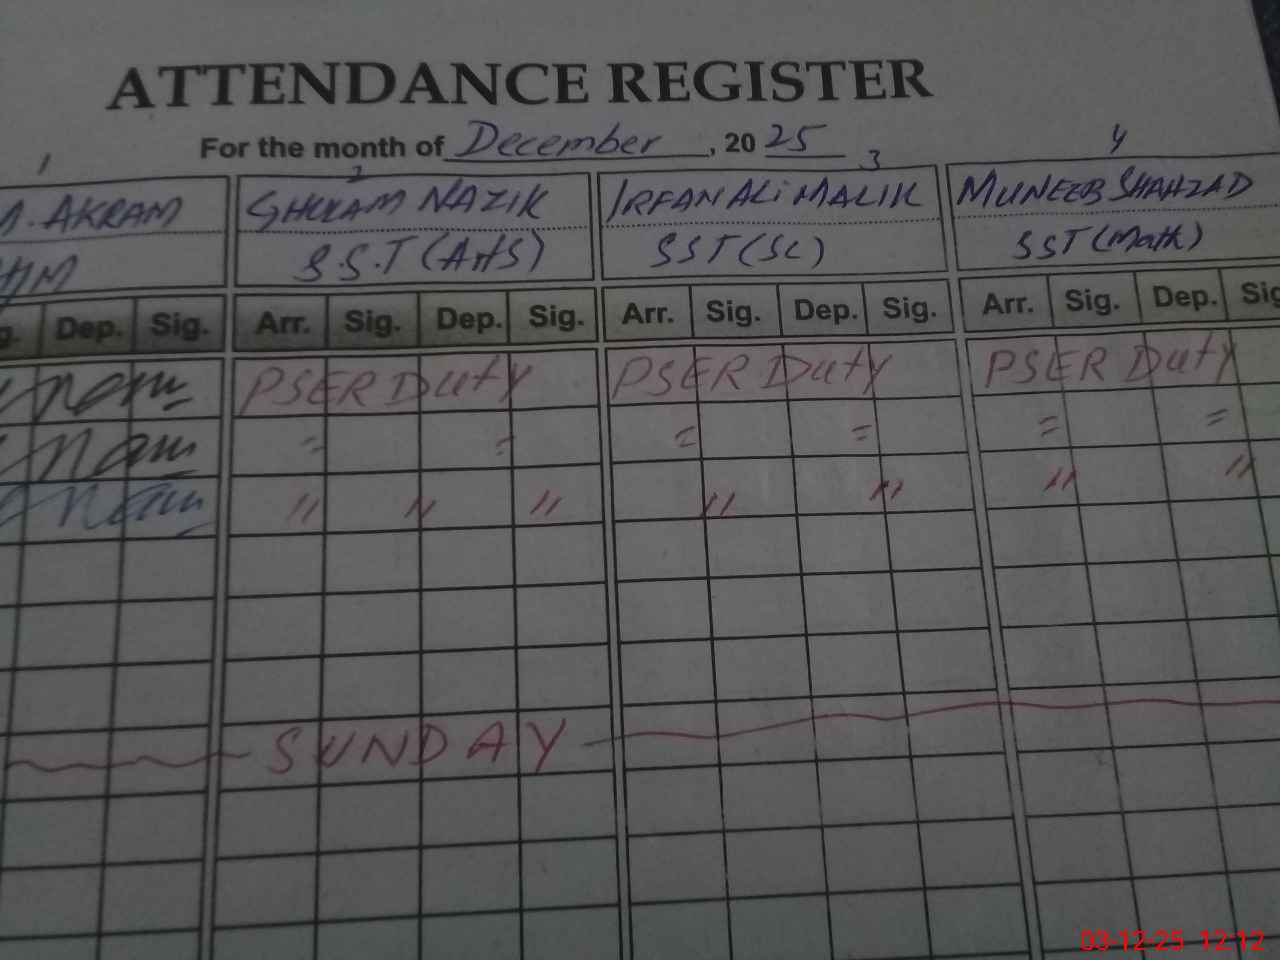 ATTENDANCE REGISTER
For the month of December, 2025
1 2 3 4
M. AKRAM GHULAM NAZIK IRFAN ALI MALIK MUNEEB SHAHZAD
HM S.S.T (Arts) SST (Sc) SST (Math)
g. Dep. Sig. Arr. Sig. Dep. Sig. Arr. Sig. Dep. Sig. Arr. Sig. Dep. Sig
PSER Duty PSER Duty PSER Duty
= = = = = =
" " " " " " "
SUNDAY
03-12-25 12:12